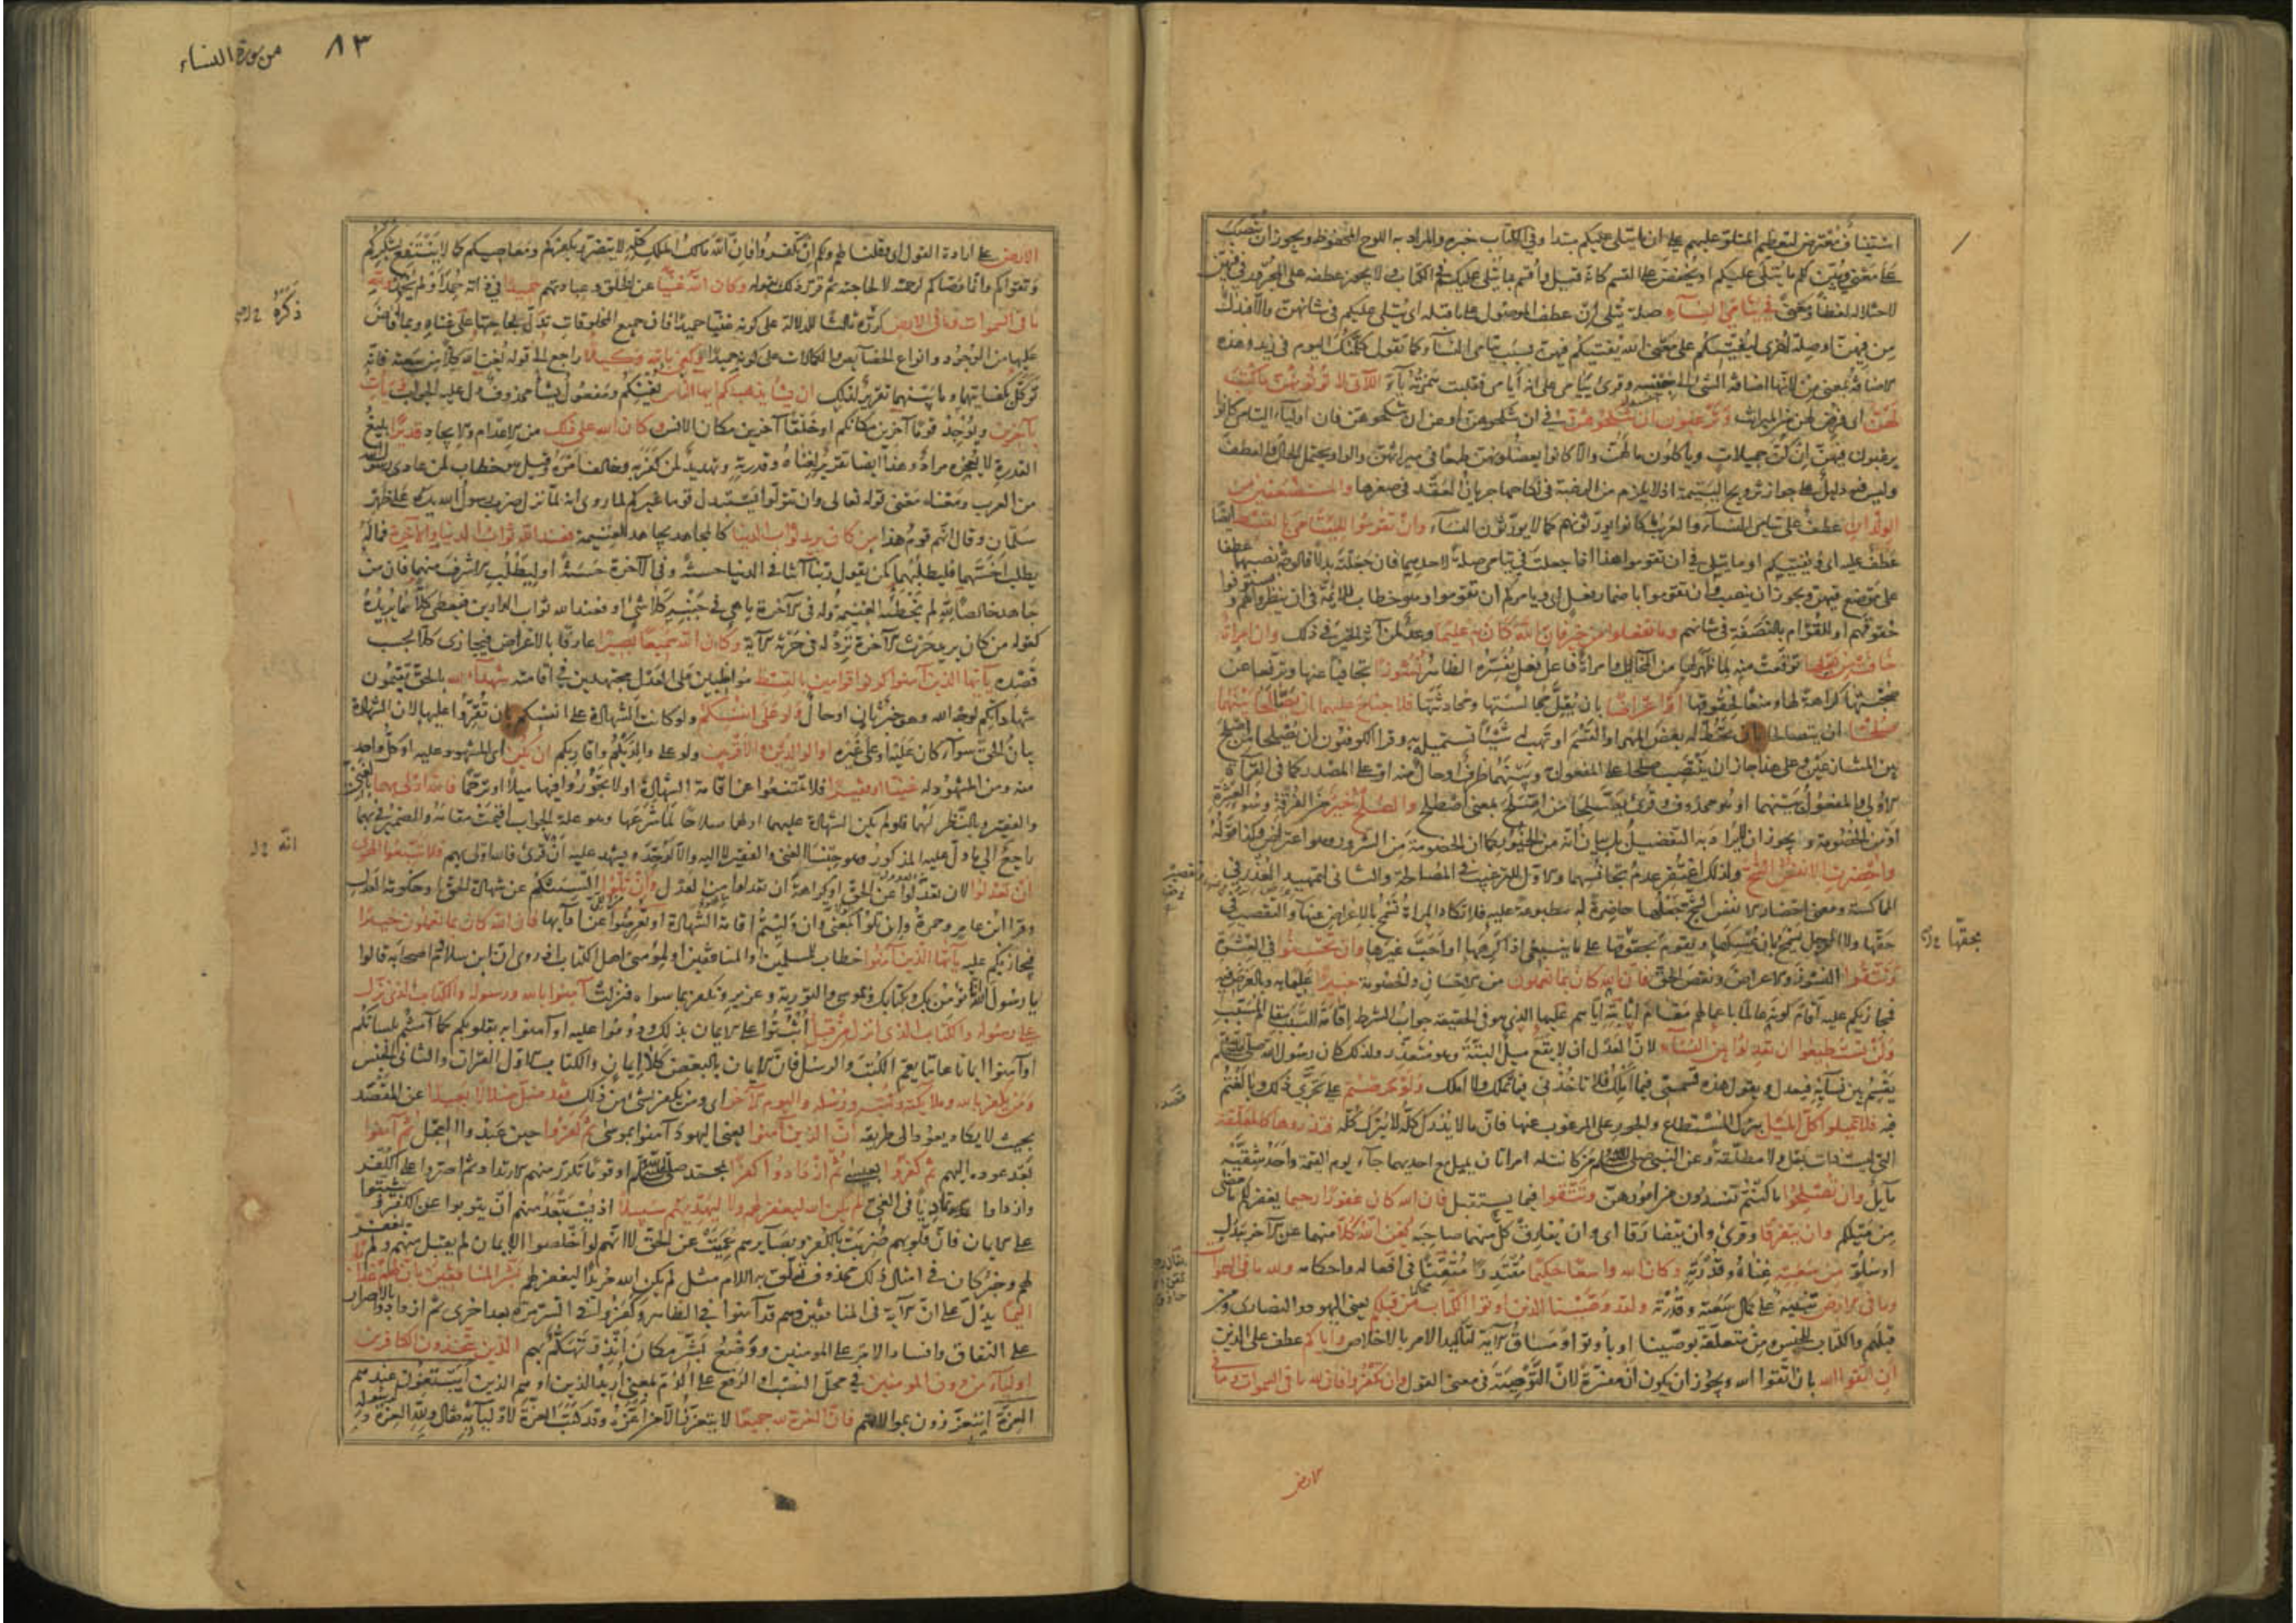 استيناف معترض لتعظيم المتلو عليهم على ان ما يتلى عليكم مبتدا وفي الكتاب خبره والمراد به اللوح المحفوظ ويجوز ان ينصب
على معنى ويبين لكم ما يتلى عليكم او يخفض على القسم كانه قيل واقسم بما يتلى عليكم في الكتاب ولا يجوز عطفه على المجرور في فيهن
لاختلاله لفظا ومعنى في يتامى النساء صلة يتلى ان عطف الموصول على ما قبله اى يتلى عليكم في شانهن والا فبدل
من فيهن او صلة اخرى ليفتيكم على معنى الله يفتيكم فيهن بسبب يتامى النساء كما تقول كلمتك اليوم في زيد وهذه
الاضافة بمعنى من لانها اضافة الشئ الى جنسه وقرئ ييامى على انه ايامى فقلبت همزته ياء اللاتي لا تؤتونهن ما كتب
لهن اى فرض لهن من الميراث وترغبون ان تنكحوهن في ان تنكحوهن او عن ان تنكحوهن فان اولياء اليتامى كانوا
يرغبون فيهن ان كن جميلات وياكلون مالهن والا كانوا يعضلونهن طمعا في ميراثهن والواو يحتمل الحال والعطف
وليس فيه دليل على جواز تزويج اليتيمة اذ لا يلزم من الرغبة في نكاحها جريان العقد في صغرها والمستضعفين من
الولدان عطف على يتامى النساء والعرب كانوا لا يورثونهم كما لا يورثون النساء وان تقوموا لليتامى بالقسط ايضا
عطف عليه اى ويفتيكم او ما يتلى في ان تقوموا هذا اذا جعلت في يتامى صلة لاحدهما فان جعلته بدلا فالوجه نصبهما عطفا
على موضع فيهن ويجوز ان ينصب وان تقوموا باضمار فعل اى ويامركم ان تقوموا وهو خطاب للائمة في ان ينظروا لهم ويستوفوا
حقوقهم او للقوام بالنصفة في شانهم وما تفعلوا من خير فان الله كان به عليما وعد لمن آثر الخير في ذلك وان امراة
خافت من بعلها توقعت منه لما ظهر لها من المخايل وامراة فاعل فعل يفسره الظاهر نشوزا تجافيا عنها وترفعا عن
صحبتها كراهة لها ومنعا لحقوقها او اعراضا بان يقل مجالستها ومحادثتها فلا جناح عليهما ان يصالحا بينهما
صلحا ان يتصالحا بان تحط له بعض المهر او القسم او تهب له شيئا تستميله به وقرا الكوفيون ان يصلحا من اصلح
بين المتنازعين وعلى هذا جاز ان ينتصب صلحا على المفعول به وبينهما ظرف او حال منه او على المصدر كما في القراءة
الاولى والمفعول بينهما او هو محذوف وقرئ يصلحا من اصتلح بمعنى اصطلح والصلح خير من الفرقة وسوء العشرة
او من الخصومة ويجوز ان لا يراد به التفضيل بل بيان انه من الخيور كما ان الخصومة من الشرور وهو اعتراض وكذا قوله
واحضرت الانفس الشح ولذلك اغتفر عدم تجانسهما والاول للترغيب في المصالحة والثاني لتمهيد العذر في
المماكسة ومعنى احضار الانفس الشح جعلها حاضرة له مطبوعة عليه فلا تكاد المراة تسمح بالاعراض عنها والتقصير في
حقها ولا الرجل يسمح بان يمسكها ويقوم بحقوقها على ما ينبغي اذا كرهها او احب غيرها وان تحسنوا في العشرة
وتتقوا النشوز والاعراض ونقص الحق فان الله كان بما تعملون من الاحسان والخصومة خبيرا عليما به وبالغرض فيه
فيجازيكم عليه اقام كونه عالما باعمالهم مقام اثابته اياهم عليها الذي هو في الحقيقة جواب الشرط اقامة السبب مقام المسبب
ولن تستطيعوا ان تعدلوا بين النساء لان العدل ان لا يقع ميل البتة وهو متعذر ولذلك كان رسول الله صلى الله عليه وسلم
يقسم بين نسائه فيعدل ويقول هذه قسمتي فيما املك فلا تاخذني فيما تملك ولا املك ولو حرصتم على تحري ذلك وبالغتم
فيه فلا تميلوا كل الميل بترك المستطاع والجور على المرغوب عنها فان ما لا يدرك كله لا يترك كله فتذروها كالمعلقة
التي ليست ذات بعل ولا مطلقة وعن النبي صلى الله عليه وسلم من كانت له امراتان يميل مع احديهما جاء يوم القيمة واحد شقيه
مايل وان تصلحوا ما كنتم تفسدون من امورهن وتتقوا فيما يستقبل فان الله كان غفورا رحيما يغفر لكم ما مضى
من ميلكم وان يتفرقا وقرئ وان يتفارقا اى وان يفارق كل منهما صاحبه يغن الله كلا منهما عن الآخر ببدل
او سلو من سعته غناه وقدرته وكان الله واسعا حكيما مقتدرا متقنا في افعاله واحكامه ولله ما في السموات
وما في الارض تنبيه على كمال سعته وقدرته ولقد وصينا الذين اوتوا الكتاب من قبلكم يعني اليهود والنصارى ومن
قبلهم والكتاب للجنس ومن متعلقة بوصينا او باوتوا ومساق الآية لتاكيد الامر بالاخلاص واياكم عطف على الذين
ان اتقوا الله بان اتقوا الله ويجوز ان يكون ان مفسرة لان التوصية في معنى القول وان تكفروا فان لله ما في السموات وما في
بحقها
الارض
٨٣
من سورة النساء
الارض على ارادة القول اى وقلنا لهم ولكم ان تكفروا فان الله مالك الملك كله لا يتضرر بكفركم ومعاصيكم كما لا ينتفع بشكركم
وتقواكم وانما وصاكم لرحمته لا لحاجته ثم قرر ذلك بقوله وكان الله غنيا عن الخلق وعبادتهم حميدا في ذاته حمد او لم يحمد ولله
ما في السموات وما في الارض كرره ثالثا للدلالة على كونه غنيا حميدا فان جميع المخلوقات تدل بحاجتها على غناه وبما افاض
عليها من الوجود وانواع الخصائص والكمالات على كونه حميدا وكفى بالله وكيلا راجع الى قوله يغن الله كلا من سعته فانه
توكل بكفايتهما وما بينهما تقرير لذلك ان يشا يذهبكم ايها الناس يفنيكم ومفعول يشا محذوف دل عليه الجواب ويات
بآخرين ويوجد قوما آخرين مكانكم او خلقا آخرين مكان الانس وكان الله على ذلك من الاعدام والايجاد قديرا بليغ
القدرة لا يعجزه مراد وهذا ايضا تقرير لغناه وقدرته وتهديد لمن كفر به وخالف امره وقيل هو خطاب لمن عادى رسول الله
من العرب ومعناه معنى قوله تعالى وان تتولوا يستبدل قوما غيركم لما روى انه لما نزل ضرب رسول الله يده على ظهر
سلمان وقال انهم قوم هذا من كان يريد ثواب الدنيا كالمجاهد يجاهد للغنيمة فعند الله ثواب الدنيا والآخرة فما له
يطلب اخسهما فليطلبهما كمن يقول ربنا آتنا في الدنيا حسنة وفي الآخرة حسنة او ليطلب الاشرف منهما فان من
جاهد خالصا لله لم تخطئه الغنيمة وله في الآخرة ما هي في جنبه كلا شئ او فعند الله ثواب الدارين فيعطي كلا ما يريده
كقوله من كان يريد حرث الآخرة نزد له في حرثه الآية وكان الله سميعا بصيرا عارفا بالاغراض فيجازى كلا بحسب
قصده يا ايها الذين آمنوا كونوا قوامين بالقسط مواظبين على العدل مجتهدين في اقامته شهداء لله بالحق تقيمون
شهاداتكم لوجه الله وهو خبر ثان او حال ولو على انفسكم ولو كانت الشهادة على انفسكم بان تقروا عليها لان الشهادة
بيان للحق سواء كان عليه او على غيره او الوالدين والاقربين ولو على والديكم واقاربكم ان يكن اى المشهود عليه او كل واحد
منه ومن المشهود له غنيا او فقيرا فلا تمتنعوا عن اقامة الشهادة او لا تجوروا فيها ميلا او ترحما فالله اولى بهما بالغني
والفقير وبالنظر لهما فلو لم يكن الشهادة عليهما او لهما صلاحا لما شرعها وهو علة الجواب اقيمت مقامه والضمير في بهما
راجع الى ما دل عليه المذكور وهو جنسا الغني والفقير لا اليه والا لوحد ويشهد عليه ان قرئ فالله اولى بهم فلا تتبعوا الهوى
ان تعدلوا لان تعدلوا عن الحق او كراهة ان تعدلوا من العدل وان تلووا السنتكم عن شهادة الحق او حكومة العدل
وقرا ابن عامر وحمزة وان تلوا بمعنى وان وليتم اقامة الشهادة او تعرضوا عن ادائها فان الله كان بما تعملون خبيرا
فيجازيكم عليه يا ايها الذين آمنوا خطاب للمسلمين او المنافقين او لمؤمني اهل الكتاب اذ روى ان ابن سلام واصحابه قالوا
يا رسول الله انا نؤمن بك وبكتابك وبموسى والتورية وعزير ونكفر بما سواه فنزلت آمنوا بالله ورسوله والكتاب الذي نزل
على رسوله والكتاب الذي انزل من قبل اثبتوا على الايمان بذلك ودوموا عليه او آمنوا به بقلوبكم كما آمنتم بلسانكم
او آمنوا ايمانا عاما يعم الكتب والرسل فان الايمان بالبعض كلا ايمان والكتاب الاول القرآن والثاني الجنس
ومن يكفر بالله وملائكته وكتبه ورسله واليوم الآخر اى ومن يكفر بشئ من ذلك فقد ضل ضلالا بعيدا عن المقصد
بحيث لا يكاد يعود الى طريقه ان الذين آمنوا يعني اليهود آمنوا بموسى ثم كفروا حين عبدوا العجل ثم آمنوا
بعد عوده اليهم ثم كفروا بعيسى ثم ازدادوا كفرا بمحمد صلى الله عليه وسلم او قوما تكرر منهم الارتداد ثم اصروا على الكفر
وازدادوا تماديا في الغي لم يكن الله ليغفر لهم ولا ليهديهم سبيلا اذ يستبعد منهم ان يتوبوا عن الكفر ويثبتوا
على الايمان فان قلوبهم ضربت بالكفر وبصائرهم عميت عن الحق لا انهم لو اخلصوا الايمان لم يقبل منهم ولم يغفر
لهم وخبر كان في امثال ذلك محذوف تعلق به اللام مثل لم يكن الله مريدا ليغفر لهم بشر المنافقين بان لهم عذابا
اليما يدل على ان الآية في المنافقين وهم قد آمنوا في الظاهر وكفروا في السر مرة بعد اخرى ثم ازدادوا بالاصرار
على النفاق وافساد الامر على المومنين ووضع بشر مكان انذر تهكم بهم الذين يتخذون الكافرين
اولياء من دون المومنين في محل النصب او الرفع على الذم بمعنى اريد الذين او هم الذين ايبتغون عندهم
العزة ايتعززون بموالاتهم فان العزة لله جميعا لا يتعزز الا من اعزه وقد كتب العزة لاوليائه فقال ولله العزة ولرسوله
ذكره
الله